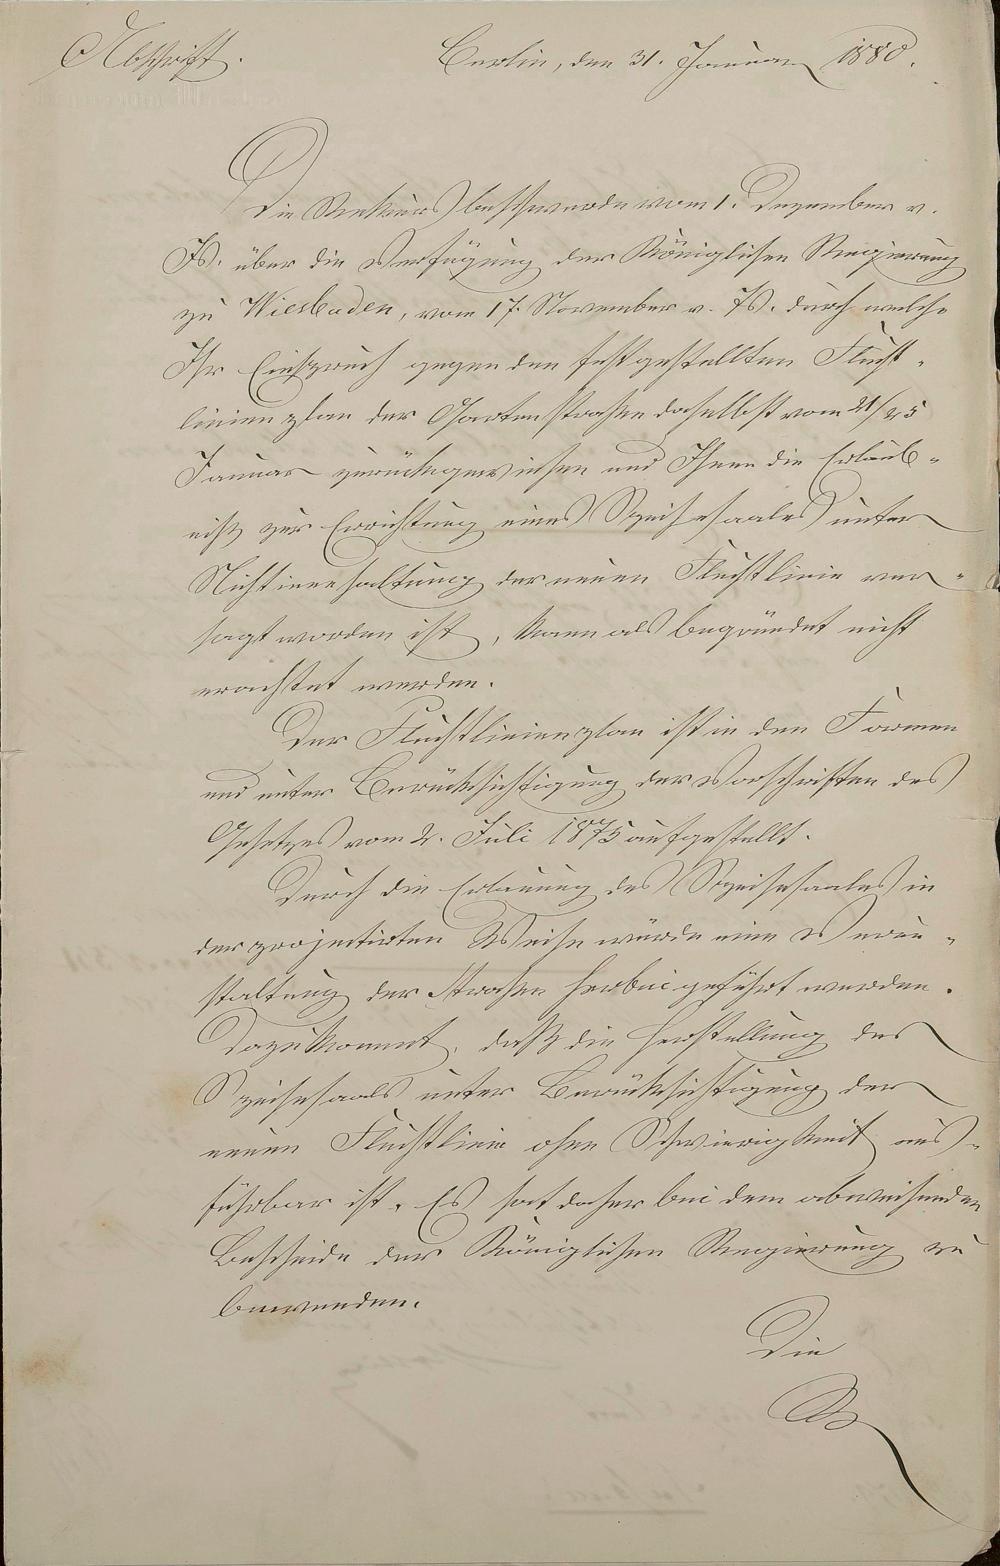 Abschrift.
Berlin, den 31. Januar 1880.
Die Rekursbeschwerde vom 1. Dezember v.
Js. über die Verfügung der Königlichen Regierung
zu Wiesbaden, vom 17. November v. Js. durch welche
Ihr Einspruch gegen den festgestellten Flucht-
linienplan der Gartenstraße daselbst vom 21/25
Januar zurückgewiesen und Ihnen die Erlaub-
niß zur Errichtung eines Speisesaales unter
Nichtinnehaltung der neuen Fluchtlinie ver-
sagt worden ist, kann als begründet nicht
erachtet werden.
Der Fluchtlinienplan ist in den Formen
und unter Berücksichtigung der Vorschriften des
Gesetzes vom 2. Juli 1875 aufgestellt.
Durch die Erbauung des Speisesaales in
der projectirten Weise würde eine Verun-
staltung der Straße herbeigeführt werden.
Dazu kommt, daß die Herstellung des
Speisesaals unter Berücksichtigung der
neuen Fluchtlinie ohne Schwierigkeit aus-
führbar ist. Es hat daher bei dem abweisenden
Bescheide der Königlichen Regierung zu
bewenden.
Die